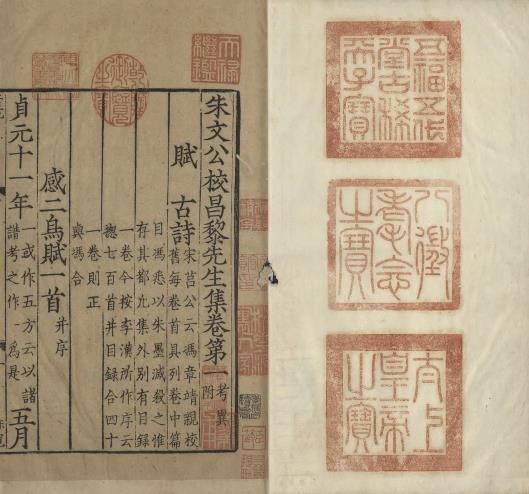 五福五代
堂古稀
天子寶
八徵
耄念
之寶
太上
皇帝
之寶
天祿
繼鑑
朱文公校昌黎先生集卷第一 考異
附
賦 古詩 宋莒公云馮章靖親校
舊每卷首具列卷中篇
目馮悉以朱墨滅殺之惟
存其都凡集外別有目録
一卷今按李漢所作序云
總七百首并目録合四十
一卷則正
與馮合
感二鳥賦一首 并序
貞元十一年 一或作五方云以諸
譜考之作一爲是 五月